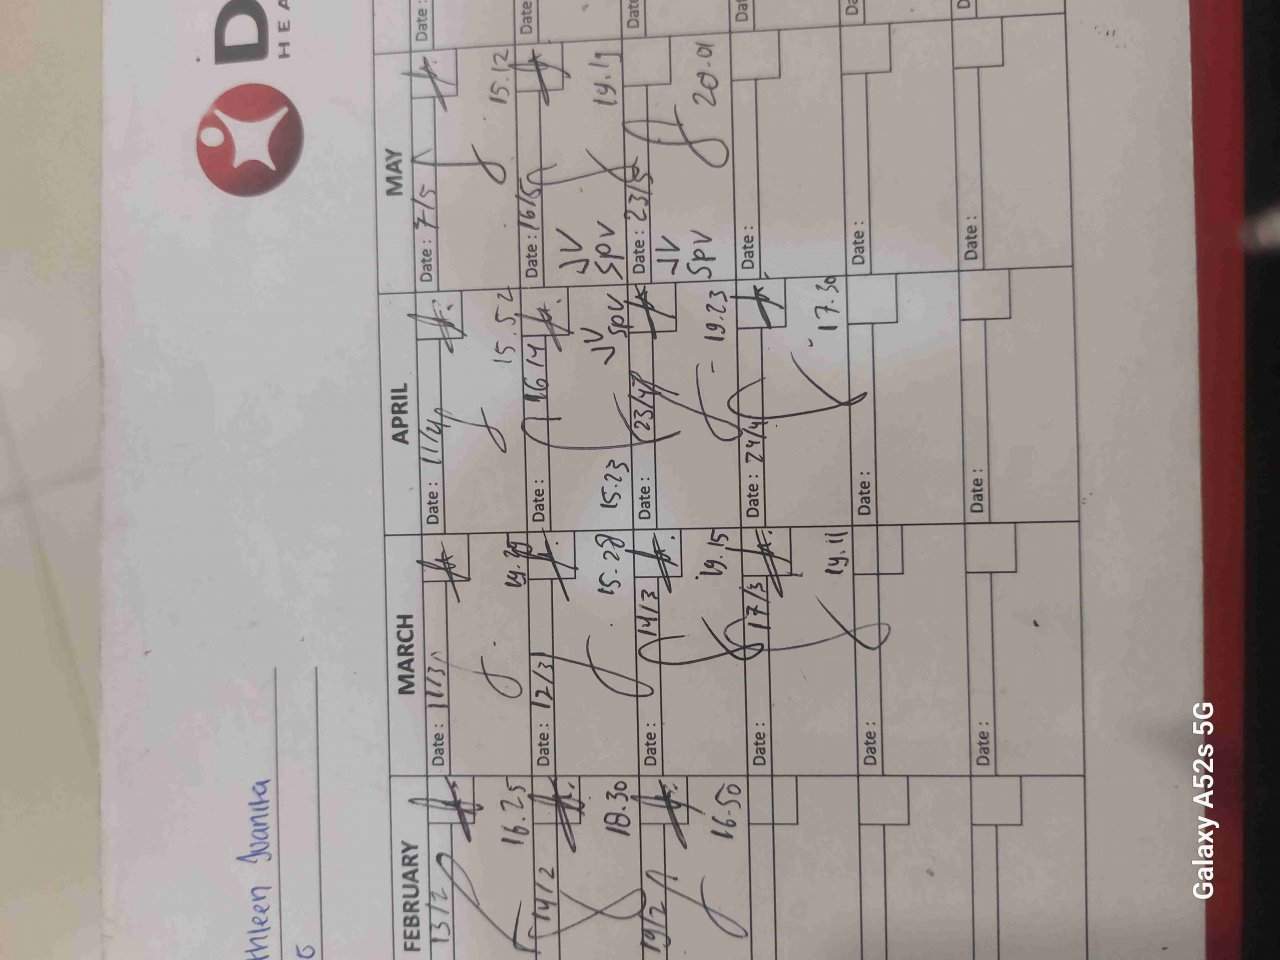 D
HEA
thleen Juanita
G
FEBRUARY
MARCH
APRIL
MAY
13/2
16.25
Date : 11/3
19.30
Date : 11/4
15.52
Date : 7/5
15.12
Date :
14/2
18.30
Date : 12/3
15.28
Date : 16/4
JV
SPV
15.23
Date : 16/5
JV
SPV
19.19
Date
19/2
16.50
Date : 14/3
19.15
Date : 23/4
19.23
Date : 23/5
JV
SPV
20.01
Date
Date : 17/3
19.11
Date : 24/4
17.30
Date :
Dat
Date :
Date :
Date :
Da
Date :
Date :
Date :
D
Galaxy A52s 5G